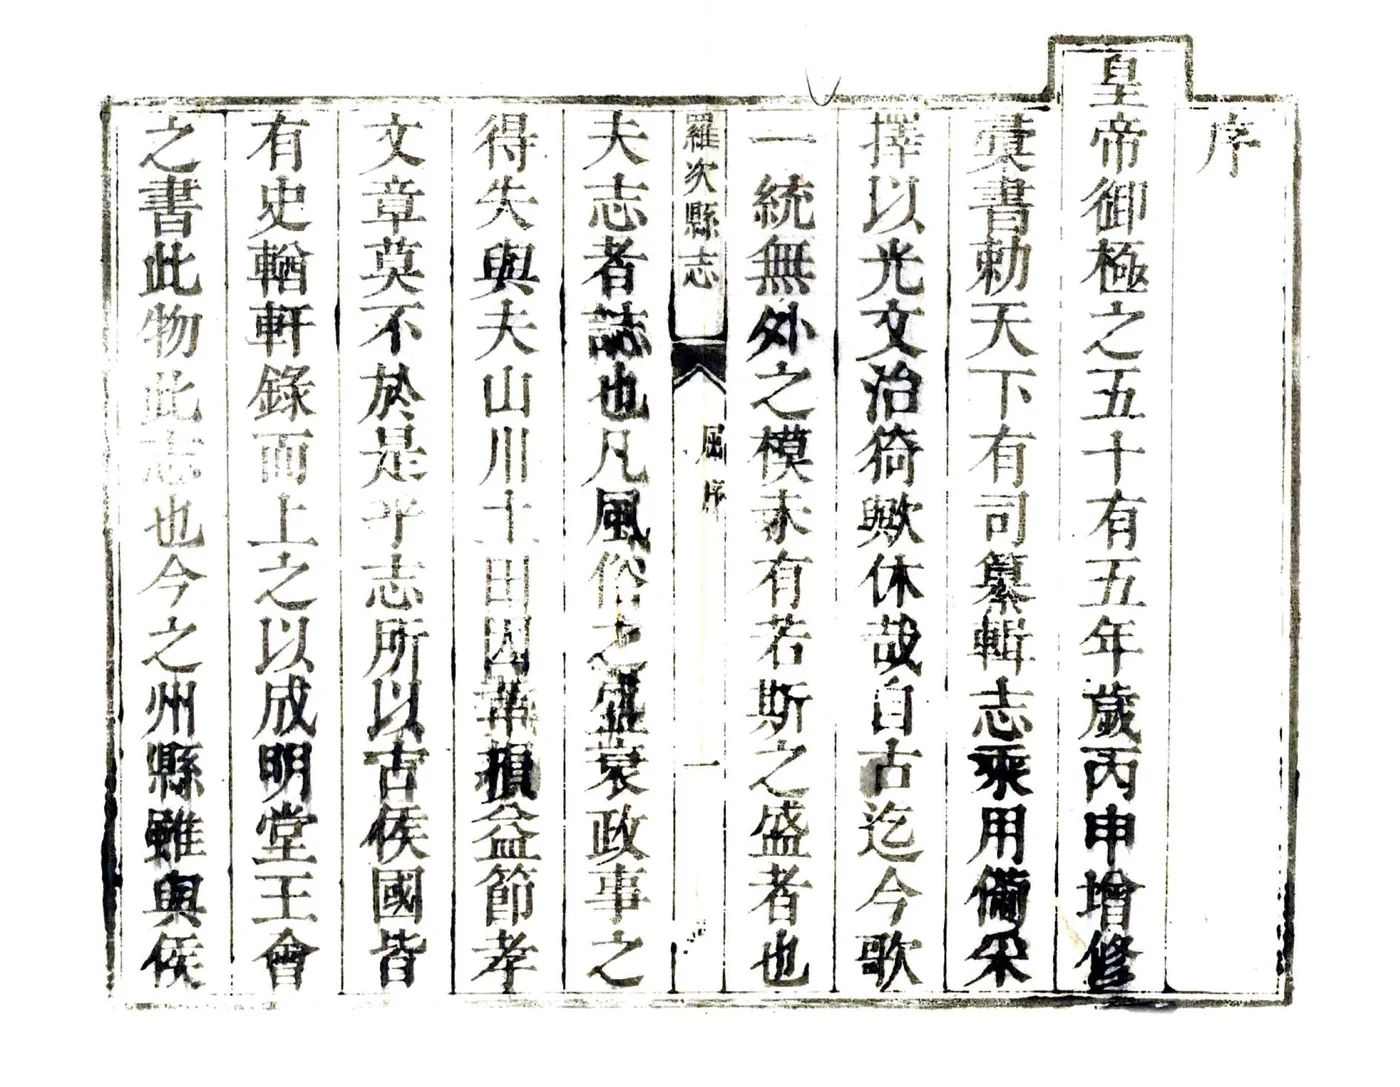 序
皇帝御極之五十有五年歲丙申增修
彚書勅天下有司纂輯志乘用備采
擇以光文治猗歟休哉自古迄今歌
一統無外之模未有若斯之盛者也
羅次縣志
序
一
夫志者誌也凡風俗之盛衰政事之
得失與夫山川土田因革損益節孝
文章莫不於是乎志所以古侯國皆
有史輶軒錄而上之以成明堂王會
之書此物此志也今之州縣雖與侯